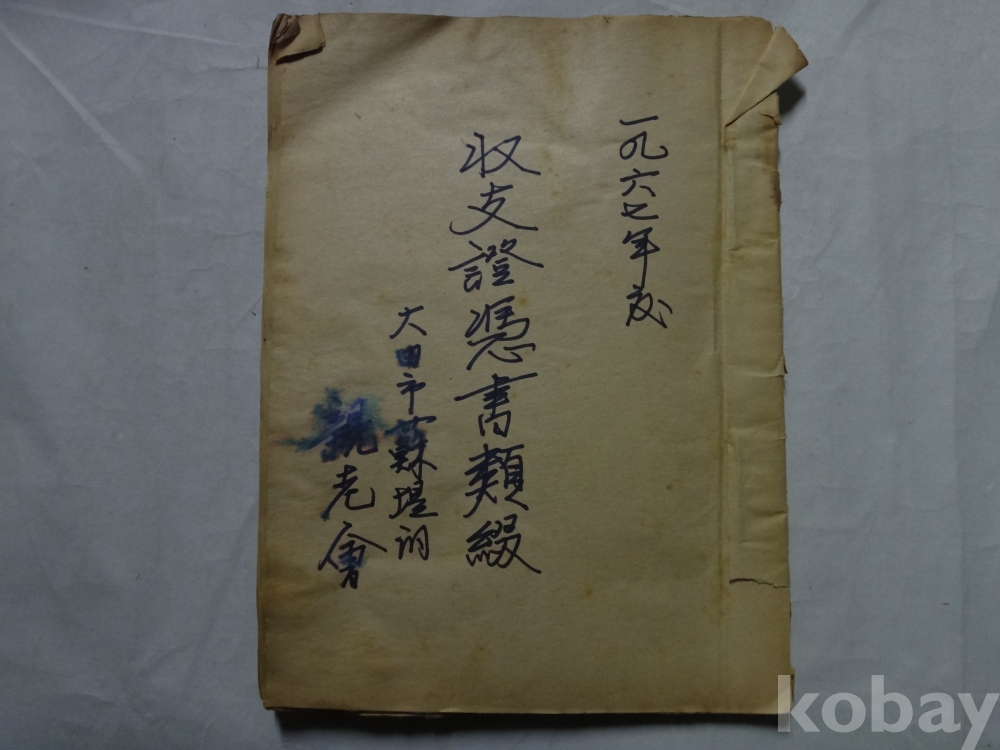 一九六七年度
収支證憑書類綴
大田市蘇堤洞
親老會
kobay